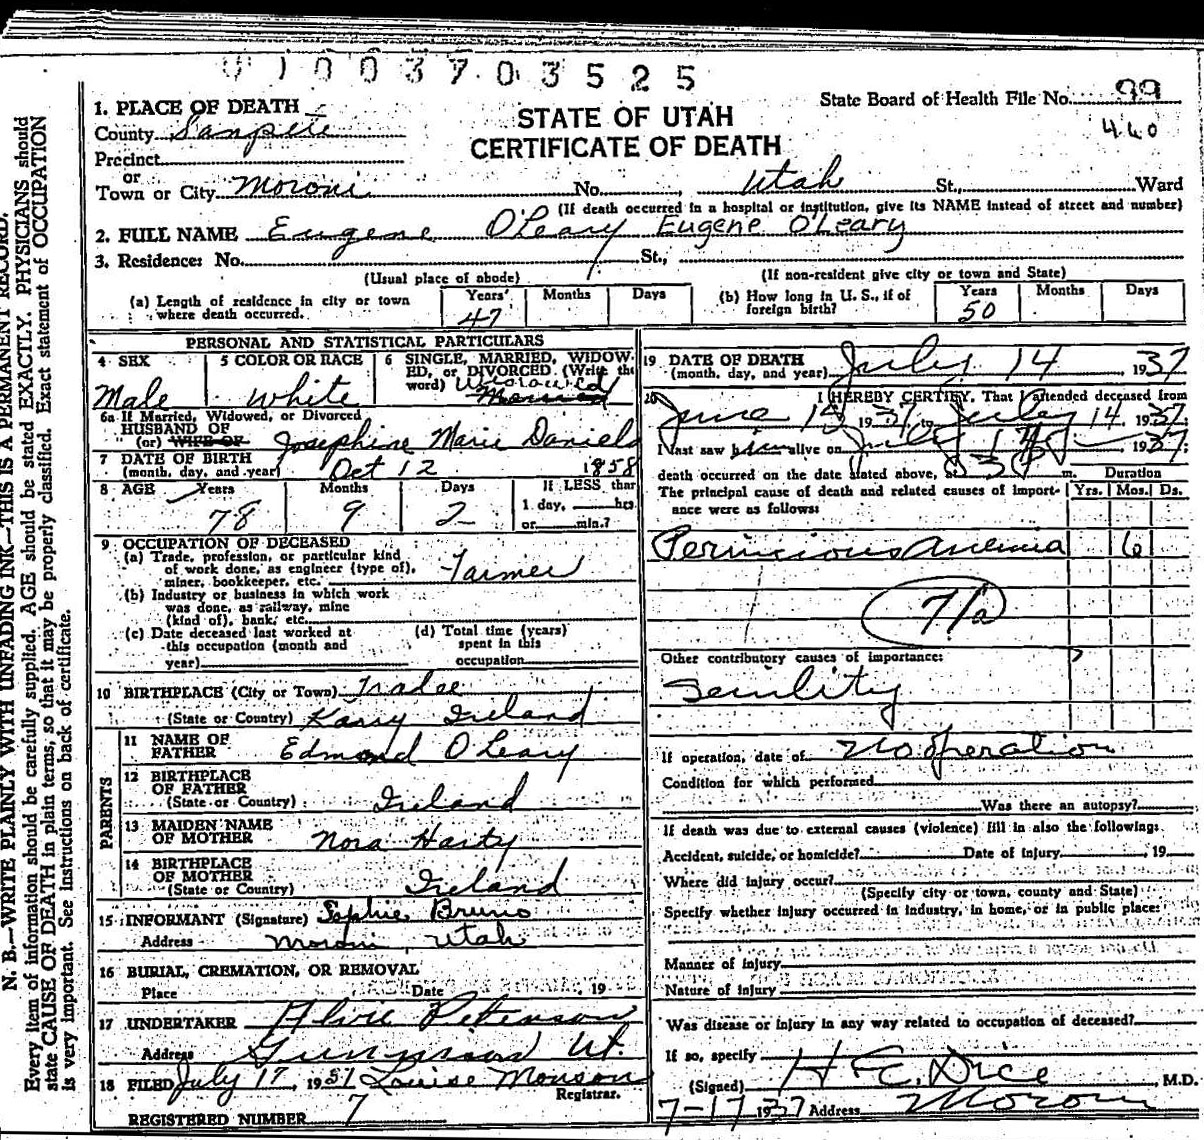 0 1 0 0 3 7 0 3 5 2 5
State Board of Health File No. 99
440
STATE OF UTAH
CERTIFICATE OF DEATH
1. PLACE OF DEATH
County Sanpete
Precinct
or
Town or City Moroni No. , Utah St., Ward
(If death occurred in a hospital or institution, give its NAME instead of street and number)
2. FULL NAME Eugene O'Leary Eugene O'Leary
3. Residence: No. St.,
(Usual place of abode) (If non-resident give city or town and State)
(a) Length of residence in city or town where death occurred. Years 47 Months Days
(b) How long in U. S., if of foreign birth? Years 50 Months Days
PERSONAL AND STATISTICAL PARTICULARS
4 SEX Male
5 COLOR OR RACE White
6 SINGLE, MARRIED, WIDOWED, or DIVORCED. (Write the word) Widowed Married
6a If Married, Widowed, or Divorced
HUSBAND OF
(or) WIFE OF Josephine Marie Daniels
7 DATE OF BIRTH
(month, day, and year) Oct 12 1858
8 AGE Years 78 Months 9 Days 2
If LESS than
1 day, hrs.
or min.?
9 OCCUPATION OF DECEASED
(a) Trade, profession, or particular kind
of work done, as engineer (type of),
miner, bookkeeper, etc. Farmer
(b) Industry or business in which work
was done, as railway, mine
(kind of), bank, etc.
(c) Date deceased last worked at
this occupation (month and
year)
(d) Total time (years)
spent in this
occupation
10 BIRTHPLACE (City or Town) Tralee
(State or Country) Karry Ireland
PARENTS
11 NAME OF
FATHER Edmond O'Leary
12 BIRTHPLACE
OF FATHER
(State or Country) Ireland
13 MAIDEN NAME
OF MOTHER Nora Harty
14 BIRTHPLACE
OF MOTHER
(State or Country) Ireland
15 INFORMANT (Signature) Sophie Bruno
Address Moroni, Utah
16 BURIAL, CREMATION, OR REMOVAL
Place Date 19
17 UNDERTAKER Alvie Peterson
Address Gunnison Ut.
18 FILED July 17, 1937 Louise Monson
Registrar.
REGISTERED NUMBER 7
19 DATE OF DEATH
(month, day, and year) July 14 1937
20 I HEREBY CERTIFY, That I attended deceased from
June 15 1937, July 14, 1937.
I last saw him alive on July 1937.
death occurred on the date stated above, at m.
Duration
The principal cause of death and related causes of importance were as follows: Yrs. Mos. Ds.
Pernicious Anemia 6
71a
Other contributory causes of importance:
Senility
If operation, date of No operation
Condition for which performed
Was there an autopsy?
If death was due to external causes (violence) fill in also the following:
Accident, suicide, or homicide? Date of injury , 19
Where did injury occur?
(Specify city or town, county and State)
Specify whether injury occurred in industry, in home, or in public place:
Manner of Injury
Nature of Injury
Was disease or injury in any way related to occupation of deceased?
If so, specify
(Signed) H.C. Dice , M.D.
7-17 1937 Address Moroni
N. B.—WRITE PLAINLY WITH UNFADING INK—THIS IS A PERMANENT RECORD.
Every item of information should be carefully supplied. AGE should be stated EXACTLY. PHYSICIANS should
state CAUSE OF DEATH in plain terms, so that it may be properly classified. Exact statement of OCCUPATION
is very important. See Instructions on back of certificate.